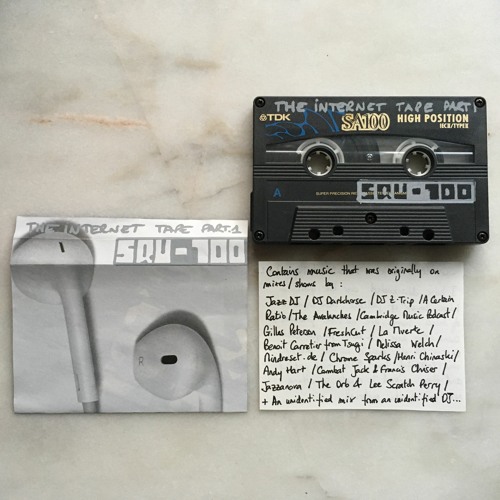 THE INTERNET TAPE PART.1
TDK SA100 HIGH POSITION
IECII/TYPE II
A
SUPER PRECISION
SRU-100
THE INTERNET TAPE PART.1
SRU-100
R
Contains music that was originally on
mixes/shows by :
Jazz DJ / DJ Darkhorse / DJ Z-Trip / A Certain
Ratio / The Avalanches / Cambridge Music Podcast /
Gilles Peterson / FreshCut / La Muerte /
Benoit Carretier from Tsugi / Melissa Welch /
Mindreset.de / Chrome Sparks / Henri Chinaski /
Andy Hart / Combat Jack & Francis Chriser /
Jazzanova / The Orb & Lee Scratch Perry /
+ An unidentified mix from an unidentified DJ...